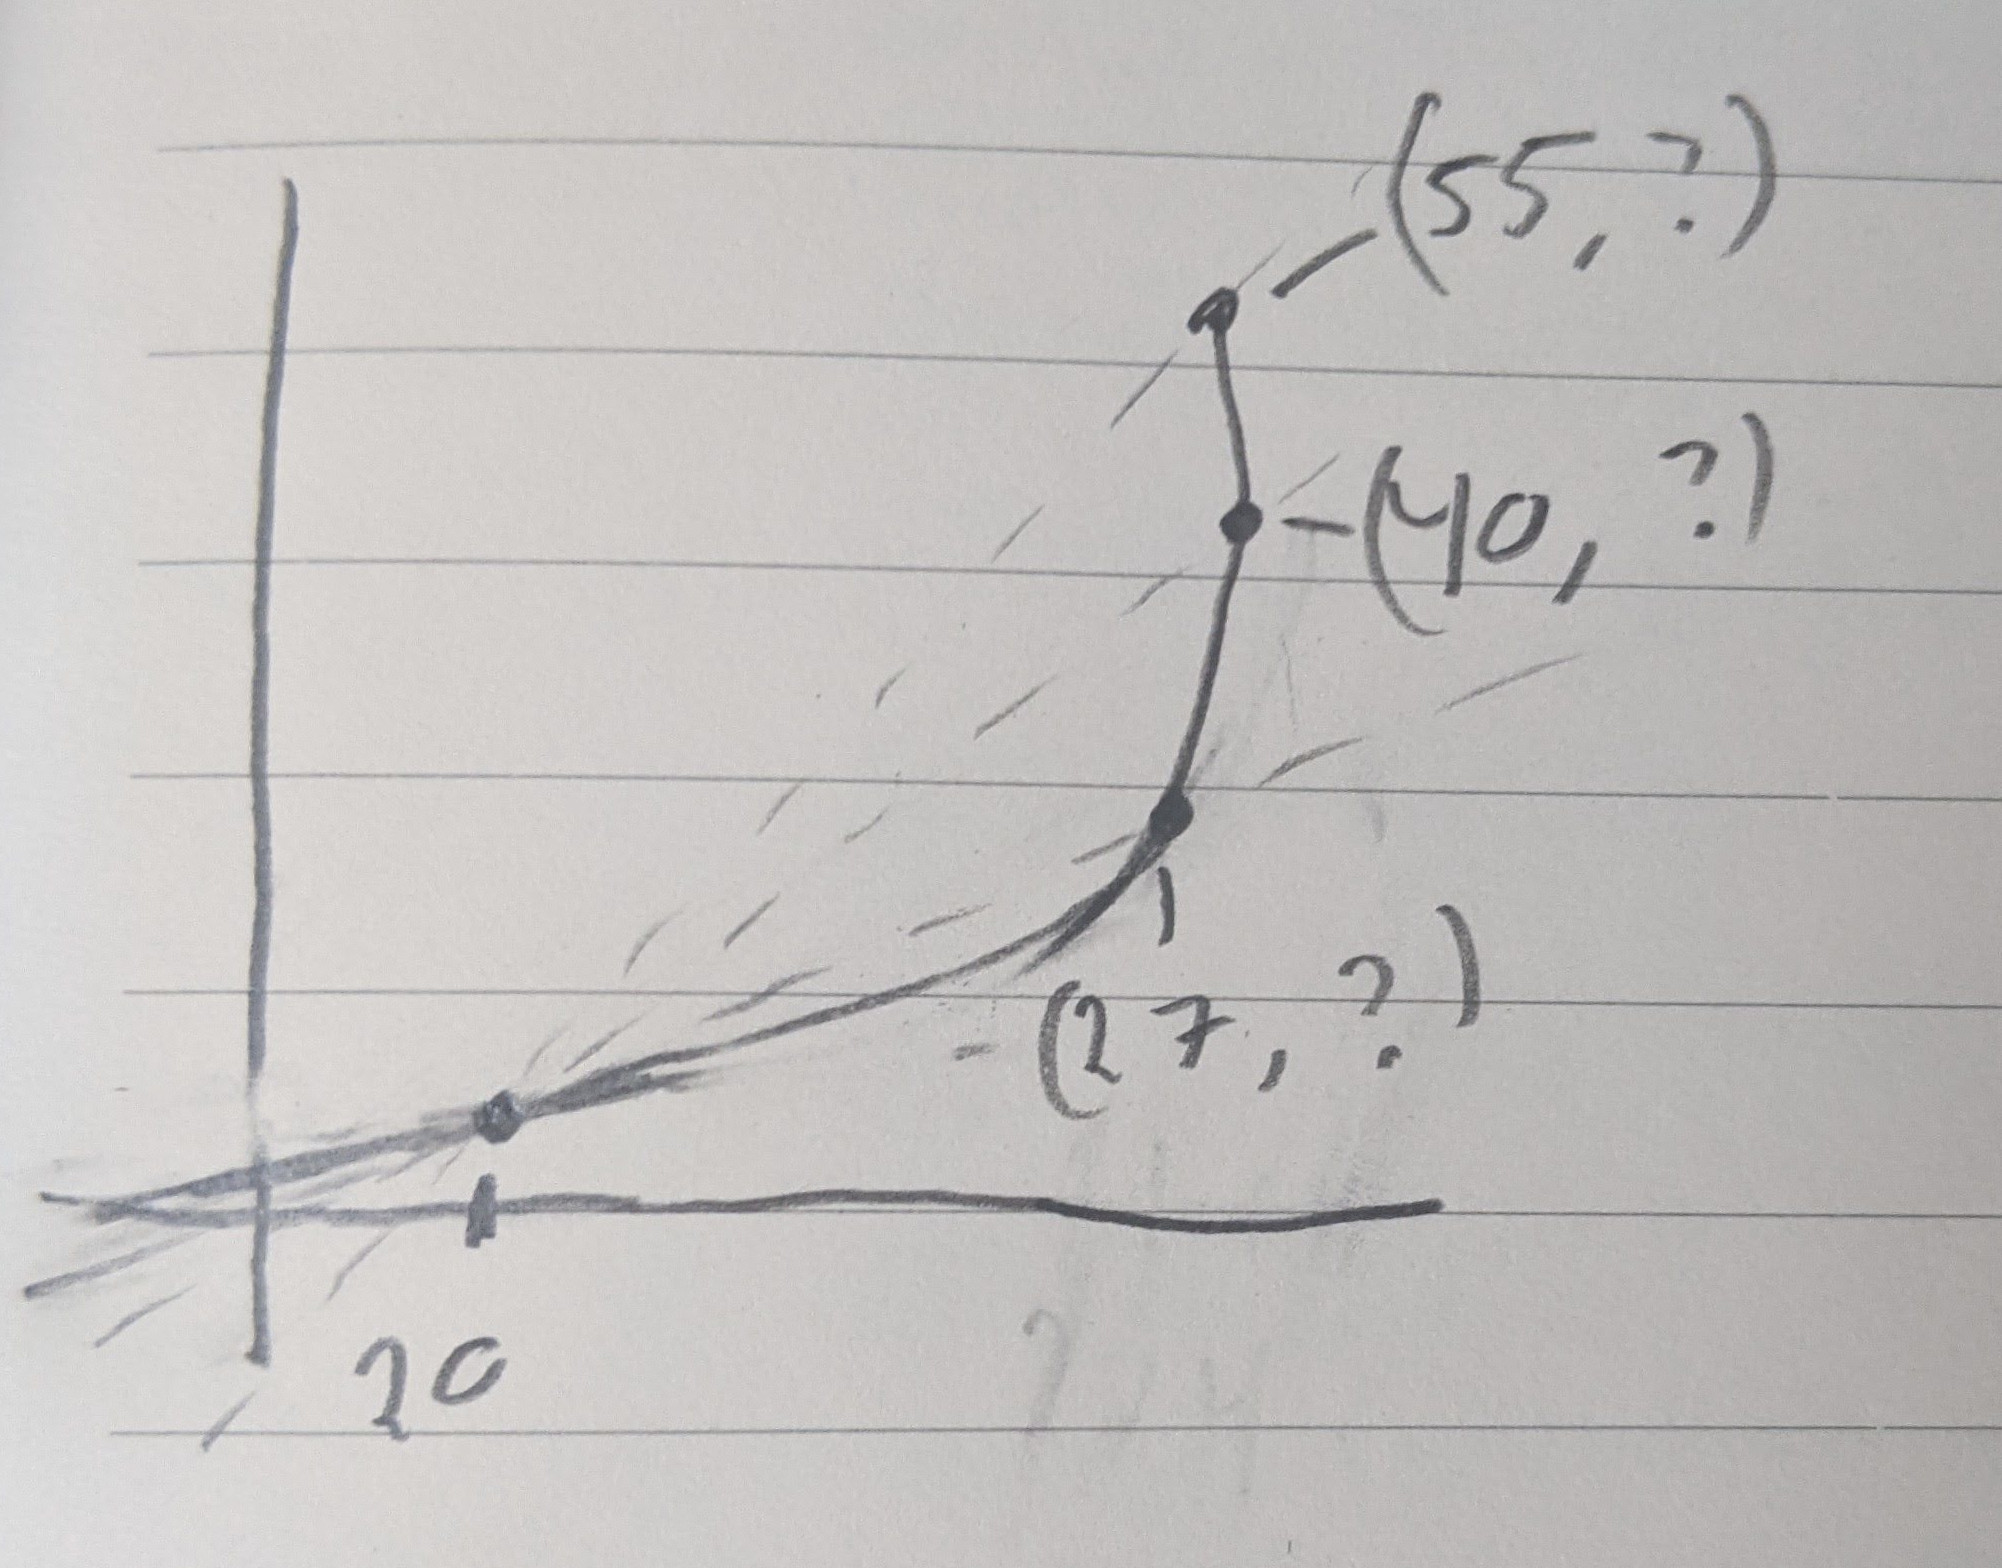 (55, ?)
(40, ?)
(27, ?)
20